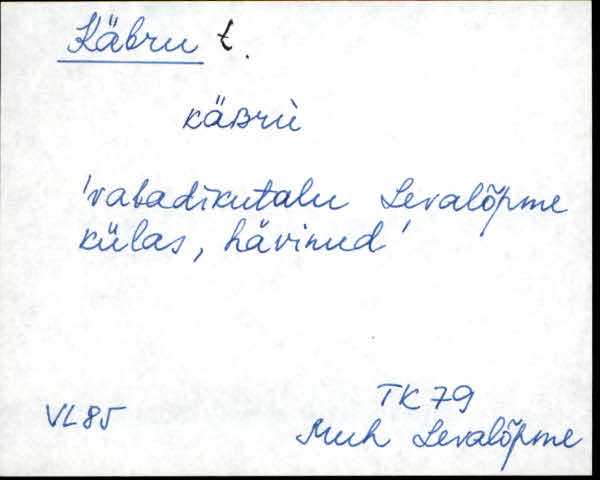 Käbru t.
käʙrù
'vabadikutalu Levalõpme
külas, hävinud'
VL85
TK 79
Muh Levalõpme